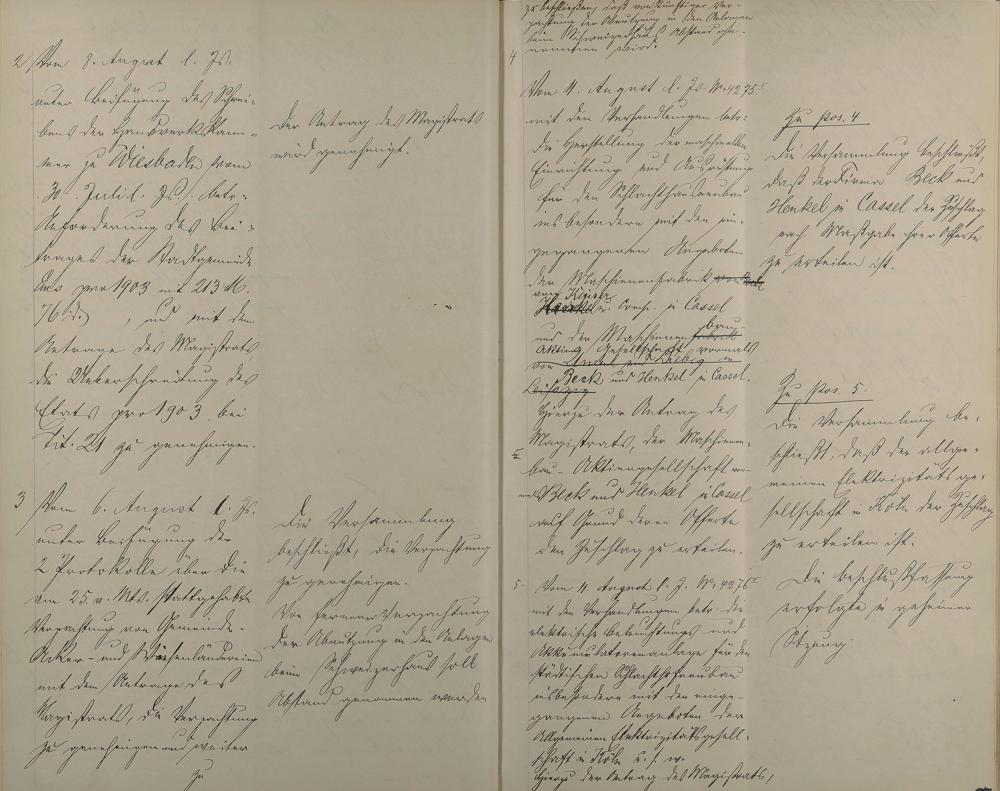 2 Vom 8. August l. Js.
unter Beifügung des Schrei-
bens der Handwerkskam-
mer zu Wiesbaden vom
30. Juli l. Js., betr.
Anforderung des Bei-
trages der Stadtgemeinde
pro 1903 mit 213 M.
76 d. , und mit dem
Antrage des Magistrats,
die Ueberschreitung des
Etats pro 1903 bei
Tit. 21 zu genehmigen.
Der Antrag des Magistrats
wird genehmigt.
3 Vom 6. August l. Js.
unter Beifügung der
2 Protokolle über die
am 25. v. Mts. stattgehabte
Verpachtung von Gemeinde-
Acker- und Wiesenländereien
mit dem Antrage des
Magistrats, die Verpachtung
zu genehmigen und weiter
zu
Die Versammlung
beschließt, die Verpachtung
zu genehmigen.
Von fernerer Verpachtung
der Abnutzung in den Anlagen
beim Schweizerhaus soll
Abstand genommen werden
zu beschließen, daß von künftiger Ver-
pachtung der Abnutzung in den Anlagen
beim Schweizerhaus Abstand ge-
nommen wird.
4
Vom 11. August l. Js. No. 4275
mit den Verhandlungen betr.
die Herstellung der maschinellen
Einrichtung und Ausrüstung
für den Schlachthausneubau
insbesondere mit den ein-
gegangenen Angeboten
der Maschinenfabrik
von
Henkel u. Cons. in Cassel
und der Maschinenbau-
Aktien Gesellschaft vormals
Beck und Henkel in Cassel.
Leipzig
Hierzu der Antrag des
Magistrats, der Maschinen-
bau-Aktiengesellschaft vor-
mals Beck und Henkel in Cassel
auf Grund deren Offerte
den Zuschlag zu erteilen.
Zu Pos. 4
Die Versammlung beschließt,
daß der Firma Beck und
Henkel in Cassel der Zuschlag
nach Maßgabe ihrer Offerte
zu erteilen ist.
5. Vom 11. August l. J. No. 4276
mit den Verhandlungen betr. die
elektrische Beleuchtungs- und
Akkumulatorenanlage für den
städtischen Schlachthofneubau
insbesondere mit den einge-
gangenen Angeboten der
Allgemeinen Elektrizitätsgesell-
schaft in Köln u. s. w.
Hierzu der Antrag des Magistrats,
Zu Pos. 5.
Die Versammlung be-
schließt, daß der allge-
meinen Elektrizitätsge-
sellschaft in Köln der Zuschlag
zu erteilen ist.
Die Beschlußfassung
erfolgte in geheimer
Sitzung